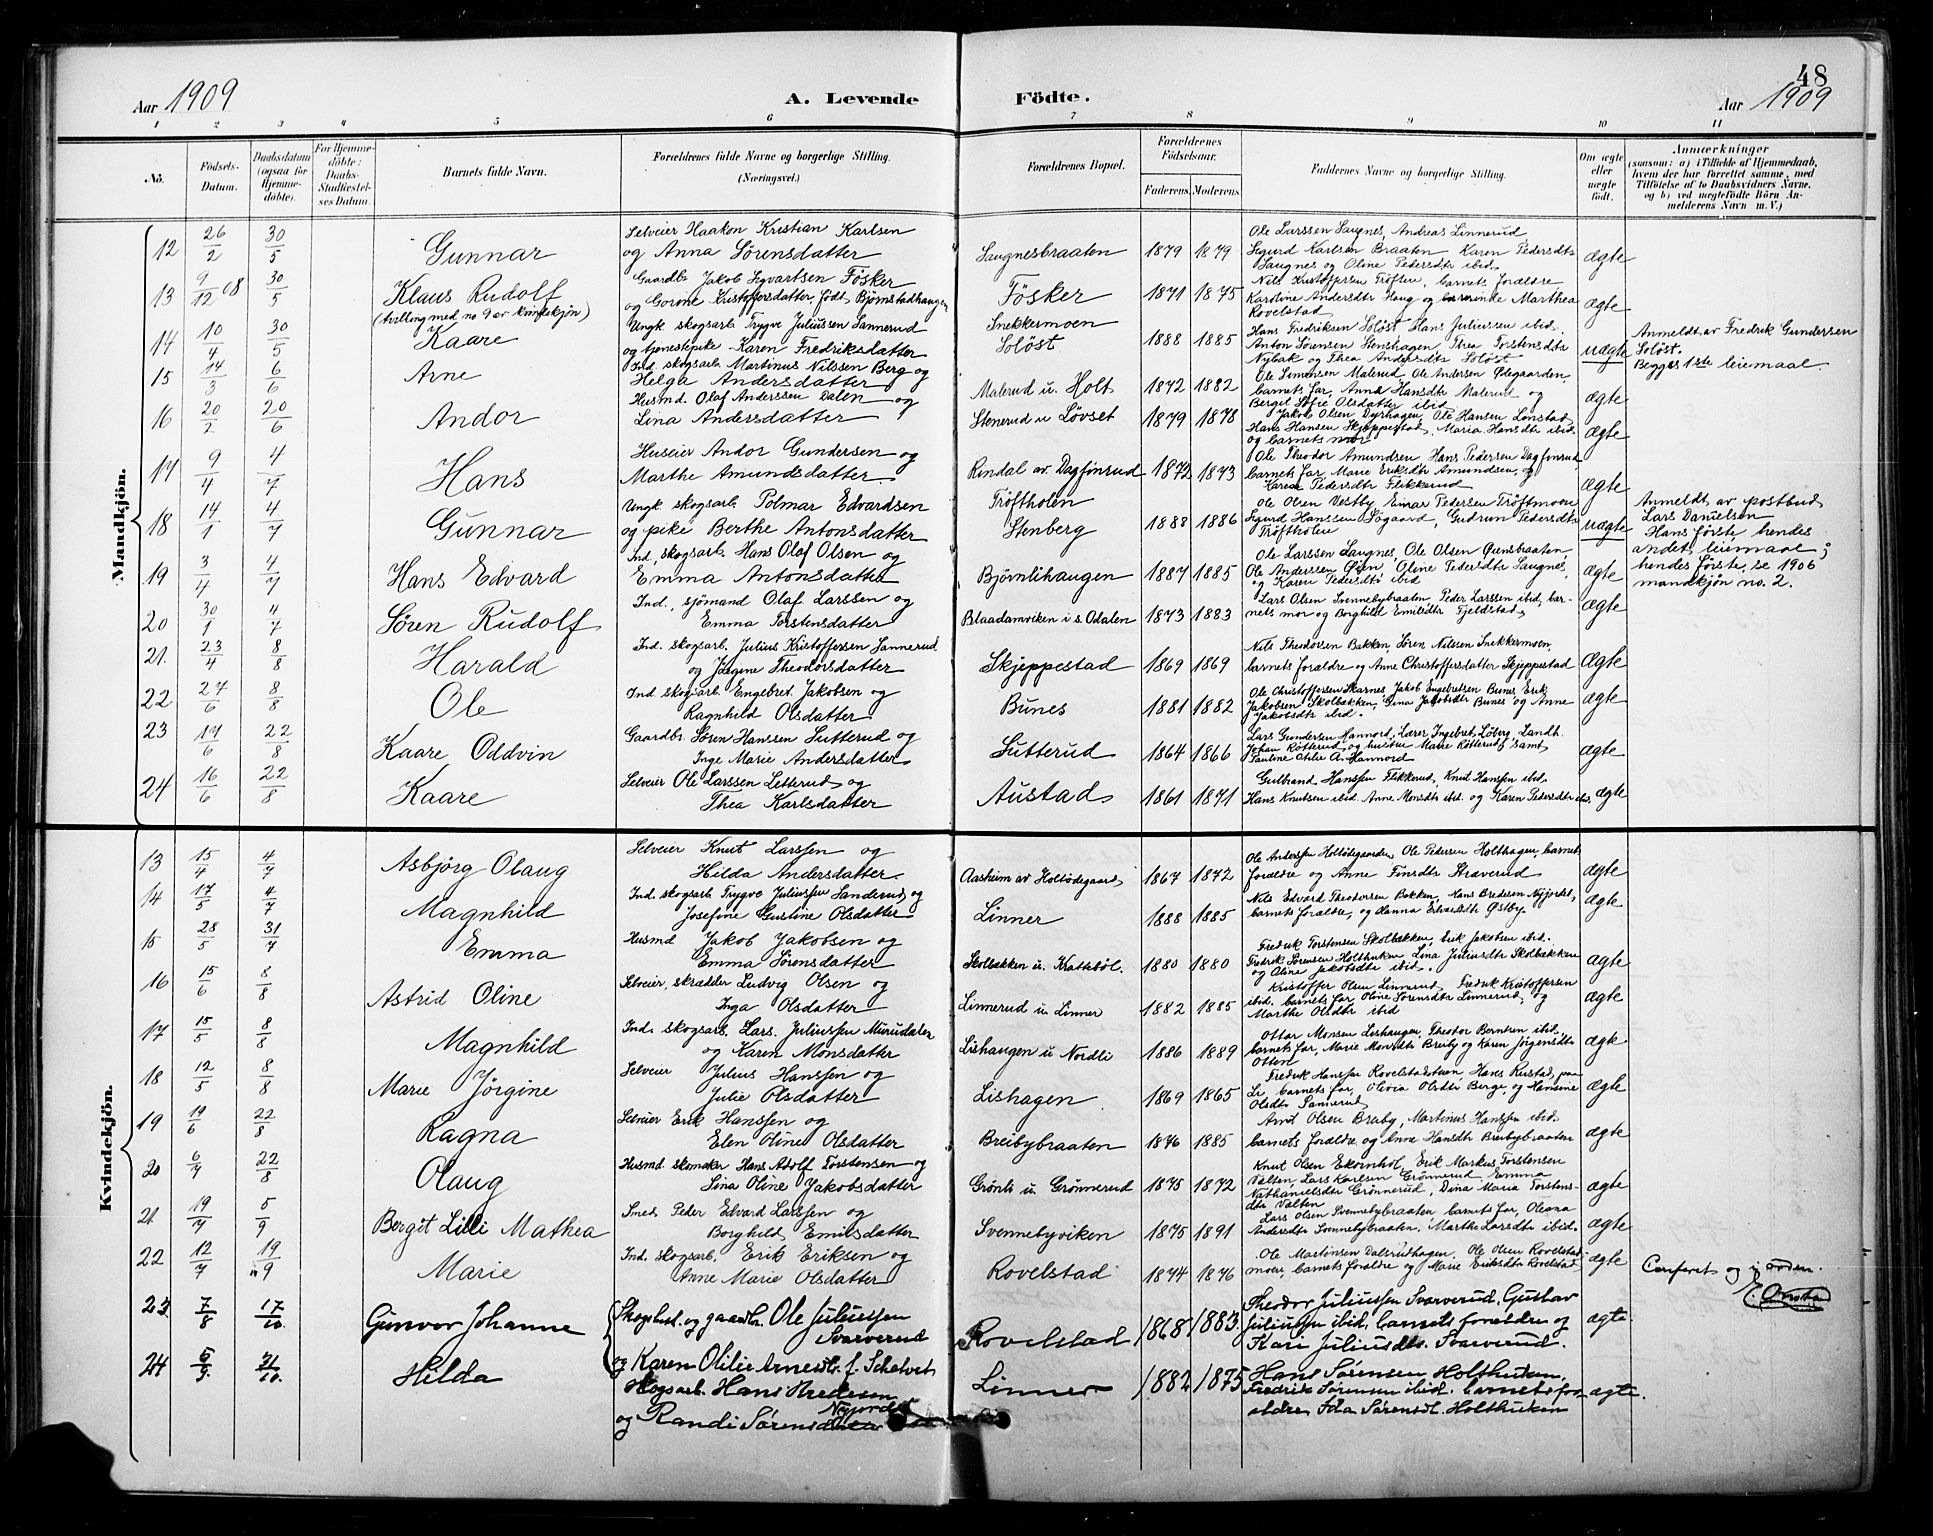 48
Aar 1909
A. Levende Födte.
Aar 1909
1 2 3 4 5 6 7 8 9 10 11
No.
Födsels-Datum.
Daabsdatum (ogsaa for Hjemme-döbte).
For Hjemme-döbte: Daabs-Stadfæstel-ses Datum.
Barnets fulde Navn.
Forældrenes fulde Navne og borgerlige Stilling.
(Næringsvei.)
Forældrenes Bopæl.
Forældrenes Födselsaar.
Faderens. Moderens.
Faddernes Navne og borgerlige Stilling.
Om ægte eller uægte födt.
Anmærkninger
(saasom: a) i Tilfælde af Hjemmedaab, hvem der har forrettet samme, med Tilföielse af to Daabsvidners Navne, og b) ved uægtefödte Börn Anmelderens Navn m. V.)
Mandkjön.
12 26/2 30/5 Gunnar
Selveier Haakon Kristian Karlsen
og Anna Sörensdatter
Saugnesbraaten 1879 1879
Ole Larssen Saugnes, Andreas Linnerud
Sigurd Karlsen Braaten Karen Pedersdtr
Saugnes og Oline Pedersdtr ibid.
ægte
13 9/12 08 30/5 Klaus Rudolf
(tvilling med no 9 av kvindekjön)
Gaardb. Jakob Sigvartsen Fösker
og Gorone Kristoffersdatter, födt Bjömstadhaugen
Fösker 1871 1875
Nils Kristoffersen Tröften, barnets forældre
Karoline Andersdtr Haug og Marthea
Rovelstad
ægte
14 10/4 30/5 Kaare
Ungk skogsarb. Trygve Juliussen Sannerud
og tjenestepike Karen Fredriksdatter
Snekkermoen
Solöst 1888 1885
Hans Fredriksen Solöst Hans Juliussen ibid.
Anton Sörensen Stenshagen Thea Torstensdtr
Nybak og Thea Andersdtr Solöst
uægte
Anmeldt av Fredrik Gundersen
Solöst.
Begges 1ste leiemaal.
15 14/3 6/6 Arne
Ind. skogsarb. Martinus Nilssen Berg og
Helga Andersdatter
Malerud u. Holt 1872 1882
Ole Simensen Malerud Ole Andersen Ødegaarden,
barnets far, Anna Hansdtr Malerud og
Bergit Sofie Olsdatter ibid
ægte
16 20/2 20/6 Andor
Husmd. Olaf Anderssen Dalen og
Lina Andersdatter
Stenerud u Lövset 1879 1878
Jakob Olsen Dyrhagen, Ole Hansen Lönstad
Hans Hansen Skjeppestad, Maria Hansdtr ibid
og barnets mor
ægte
17 9/4 4/7 Hans
Huseier Andor Gundersen og
Marthe Amundsdatter
Rindal av Dagfinrud 1872 1873
Ole Theodor Amundsen Hans Pedersen Dagfinrud
barnets far, Marie Eriksdtr Amundsen, og
Karen Pedersdtr Flikkerud
ægte
18 14/1 4/7 Gunnar
Ungk skogsarb. Polmar Edvardsen
og pike Berthe Antonsdatter
Tröftholen
Stenberg 1888 1886
Ole Olsen Vestby Einar Pedersen Tröftmoen
Sigurd Hanssen Sögaard, Gudrun Pedersdtr
Tröftholen
uægte
Anmeldt av postbud
Lars Danielsen
Hans förste, hendes
andet leiemaal;
hendes förste, se 1906
mandkjön no. 2.
19 3/4 4/7 Hans Edvard
Ind., skogsarb. Hans Olaf Olsen og
Emma Antonsdatter
Björnlihaugen 1887 1885
Ole Larssen Saugnes, Ole Olsen Ørensbraaten,
Ole Anderssen Øien, Oline Pedersdtr Saugnes,
og Karen Pedersdtr ibid
ægte
20 30/1 4/7 Sören Rudolf
Ind., sjömand Olaf Larssen og
Emma Torstensdatter
Blaadamviken i s. Odalen 1873 1883
Lars Olsen Svennebybraaten, Peder Larssen ibid, bar-
nets mor og Borghild Emilsdtr Fjeldstad
ægte
21. 23/4 8/8 Harald
Ind. skogsarb. Julius Kristoffersen Sannerud
og Jörgine Theodorsdatter
Skjeppestad 1869 1869
Nils Theodorsen Bakken, Sören Nilssen Snekkermoen,
barnets forældre og Anne Christoffersdatter Skjeppestad
ægte
22 27/6 8/8 Ole
Ind skogsarb. Engebret Jakobsen og
Ragnhild Olsdatter
Bunes 1881 1882
Ole Christoffersen Skarnes, Jakob Engebretsen Bunes, Erik
Jakobsen Skolbækken, Gina Jakobsdtr Bunes og Anne
Jakobsdtr ibid.
ægte
23 17/6 22/8 Kaare Oddvin
Gaardbr. Sören Hanssen Sutterud og
Inge Marie Andersdatter
Sutterud 1864 1866
Lars Gundersen Mannord, Lærer Ingebret Löberg, Landh.
Johan Rötterud og hustru Marie Rötterud, samt
Pauline Otilie A. Mannord
ægte
24 16/6 22/8 Kaare
Selveier Ole Larssen Letterud og
Thea Karlsdatter
Austad 1861 1871
Gulbrand Hanssen Flikkerud, Knut Hanssen ibid.
Hans Knutsen ibid. Anne Monsdtr ibid. og Karen Pedersdtr ibid.
ægte
Kvindekjön.
13 15/4 4/7 Asbjörg Olaug
Selveier Knut Larssen og
Hilda Andersdatter.
Aasheim av Holtödegaard 1867 1872
Ole Anderssen Holtödegaarden, Ole Pedersen Holthagen, barnets
forældre og Anne Finsdtr Straverud
ægte
14 17/5 4/7 Magnhild
Ind. skogsarb Trygve Juliussen Sanderud og
Josefine Gustine Olsdatter
Linner 1888 1885
Nils Edvard Theodorsen Bakken, Hans Bredesen Nyjordet,
barnets forældre, og Hanna Edvardsdtr Østby.
ægte
15 28/5 31/7 Emma
Husmd Jakob Jakobsen og
Emma Sörensdatter
Skolbækken u. Krattebøl. 1880 1880
Fredrik Torstensen Skolbækken, Erik Jakobsen ibid.
Fredrik Sörensen Holthuken Lina Juliusdtr Skolbækken
og Oline Jakobsdtr ibid.
ægte
16 15/6 8/8 Astrid Oline
Selveier, skrædder Ludvig Olsen og
Inga Olsdatter
Linnerud u. Linner 1882 1885
Kristoffer Olsen Linnerud, Fredrik Kristoffersen
ibid. barnets far, Oline Sörensdtr Linnerud og
Marthe Olsdtr ibid
ægte
17 15/5 8/8 Magnhild
Ind. skogsarb. Lars Juliussen Murudalen
og Karen Monsdatter
Lishaugen u Nordli 1886 1889
Ottar Monsen Lishaugen, Theodor Berntsen ibid.
barnets far, Marie Monsdtr Breiby og Karen Jörgensdtr
Otten
ægte
18 12/5 8/8 Marie Jörgine
Selveier Julius Hanssen og
Julie Olsdatter
Lishagen 1869 1865
Fredrik Hanssen Rovelstadstuen Hans Rustad, paa
Li, barnets far, Olivia Olsdtr Berge, og Hansine
Olsdtr Sannerud
ægte
19 19/6 22/8 Ragna
Selveier Erik Hanssen og
Elen Oline Olsdatter
Breibybraaten 1876 1885
Arnt Olsen Breiby, Martinus Hanssen ibid.
barnets forældre og Anne Hansdtr Breibybraaten
ægte
20 6/7 22/8 Olaug
Husmd skomaker Hans Adolf Torstensen og
Lina Oline Jakobsdatter
Grönli u. Grönnerud 1875 1872
Knut Olsen Ekornhol, Erik Markus Torstensen
Valten, Lars Karlsen Grönnerud, Emma
Nathanielsdtr Grönnerud, Dina Maria Torstens-
dtr Valten
ægte
21 19/7 5/9 Bergit Lilli Mathea
Smed, Peder Edvard Larssen og
Borghild Emilsdatter
Svennebyviken 1875 1891
Lars Olsen Svennebybraaten barnets far, Oleana
Andersdtr Svennebybraaten. Marthe Larsdtr ibid.
ægte
22 12/7 19/9 Marie
Ind. skogsarb. Erik Eriksen og
Anne Marie Olsdatter
Rovelstad 1874 1876
Ole Martinsen Dalsrudhagen, Ole Olsen Rovelstad-
moen, barnets forældre og Marie Eriksdtr Rovelstad
ægte
Conferet og i orden.
23 7/8 17/10. Gunvor Johanne
Skogsbest. og gaardbr. Ole Juliussen
Svarverud
og Karen Otilie Arnesdtr. f. Schalvet
Rovelstad 1868 1883
Theodor Juliussen Svarverud, Gustav
Juliussen ibid, barnets forældre og
Kari Juliusdtr. Svarverud.
ægte
24 5/9. 31/10. Hilda
Skogsarb. Hans Bredesen
Nyjordet
og Randi Sörensdatter
Linner 1882 1875
Hans Sörensen Holthuken,
Fredrik Sörensen ibid. barnets for-
ældre, Ida Sörensdt. Holthuken
ægte.